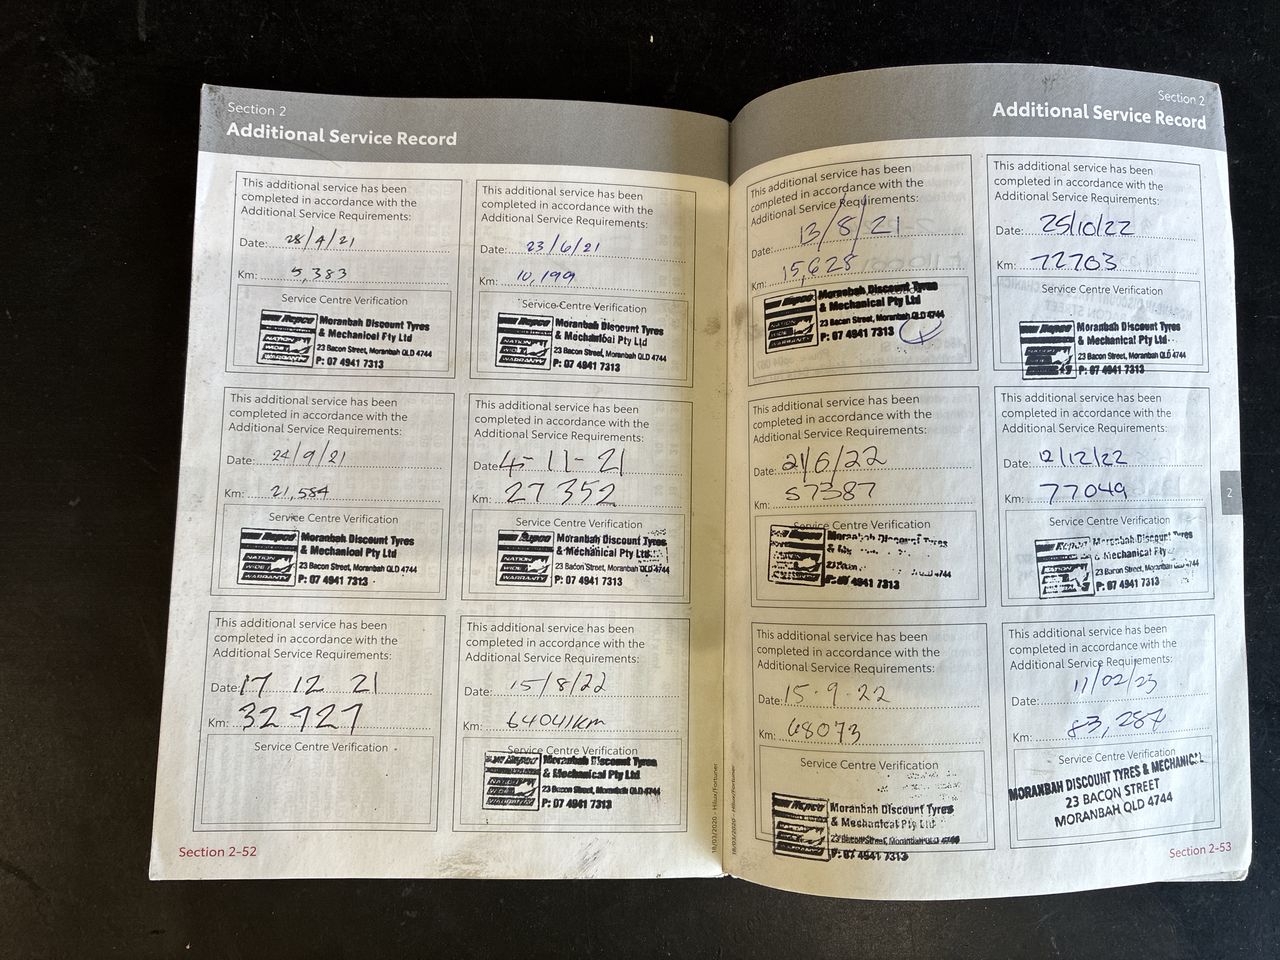 Section 2
Additional Service Record
This additional service has been
completed in accordance with the
Additional Service Requirements:
Date: 28/4/21
Km: 5,383
Service Centre Verification
Repco
NATION
WIDE
WARRANTY
Moranbah Discount Tyres
& Mechanical Pty Ltd
23 Bacon Street, Moranbah QLD 4744
P: 07 4941 7313
This additional service has been
completed in accordance with the
Additional Service Requirements:
Date: 23/6/21
Km: 10,199
Service Centre Verification
Repco
NATION
WIDE
WARRANTY
Moranbah Discount Tyres
& Mechanical Pty Ltd
23 Bacon Street, Moranbah QLD 4744
P: 07 4941 7313
This additional service has been
completed in accordance with the
Additional Service Requirements:
Date: 24/9/21
Km: 21,584
Service Centre Verification
Repco
NATION
WIDE
WARRANTY
Moranbah Discount Tyres
& Mechanical Pty Ltd
23 Bacon Street, Moranbah QLD 4744
P: 07 4941 7313
This additional service has been
completed in accordance with the
Additional Service Requirements:
Date: 4-11-21
Km: 27352
Service Centre Verification
Repco
NATION
WIDE
WARRANTY
Moranbah Discount Tyres
& Mechanical Pty Ltd
23 Bacon Street, Moranbah QLD 4744
P: 07 4941 7313
This additional service has been
completed in accordance with the
Additional Service Requirements:
Date: 17 12 21
Km:
Service Centre Verification
This additional service has been
completed in accordance with the
Additional Service Requirements:
Date: 15/8/22
Km: 64041km
Service Centre Verification
Repco
Moranbah Discount Tyres
& Mechanical Pty Ltd
23 Bacon Street, Moranbah QLD 4744
P: 07 4941 7313
Section 2-52
18/03/2020 - Hilux/Fortuner
Section 2
Additional Service Record
This additional service has been
completed in accordance with the
Additional Service Requirements:
Date: 13/8/21
Km: 15,628
Repco
NATION
WIDE
Moranbah Discount Tyres
& Mechanical Pty Ltd
23 Bacon Street, Moranbah QLD 4744
P: 07 4941 7313
This additional service has been
completed in accordance with the
Additional Service Requirements:
Date: 25/10/22
Km: 72703
Service Centre Verification
Repco
Moranbah Discount Tyres
& Mechanical Pty Ltd
23 Bacon Street, Moranbah QLD 4744
P: 07 4941 7313
This additional service has been
completed in accordance with the
Additional Service Requirements:
Date: 21/6/22
Km: 57387
Service Centre Verification
Repco
Moranbah Discount Tyres
23 Bacon
P: 07 4941 7313
This additional service has been
completed in accordance with the
Additional Service Requirements:
Date: 12/12/22
Km: 77049
Service Centre Verification
Repco
Moranbah Discount Tyres
& Mechanical Pty
23 Bacon Street, Moranbah QLD 4744
P: 07 4941 7313
This additional service has been
completed in accordance with the
Additional Service Requirements:
Date: 15.9.22
Km: 68073
Service Centre Verification
Repco
Moranbah Discount Tyres
& Mechanical Pty Ltd
23 Bacon Street, Moranbah QLD 4744
P: 07 4941 7313
This additional service has been
completed in accordance with the
Additional Service Requirements:
Date: 11/02/23
Km: 83,287
Service Centre Verification
MORANBAH DISCOUNT TYRES & MECHANICAL
23 BACON STREET
MORANBAH QLD 4744
18/03/2020 - Hilux/Fortuner
2
Section 2-53